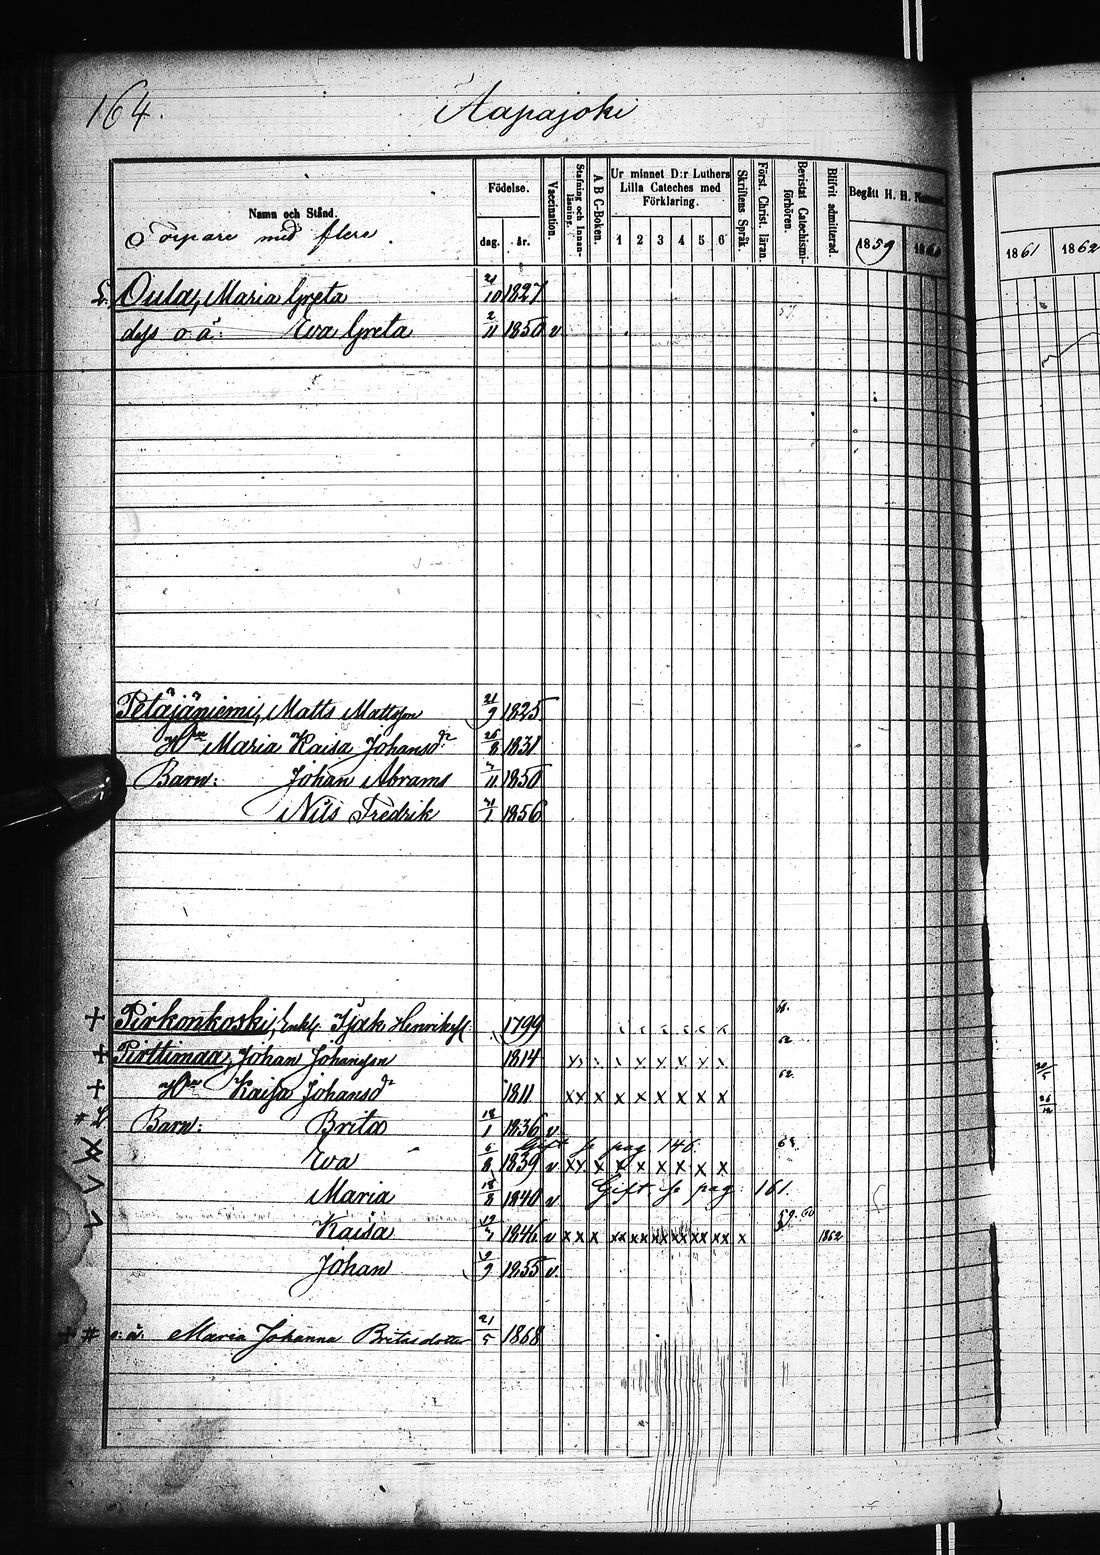 164.
Aapajoki
Namn och Stånd.
Torpare med flere.
Födelse.
dag. år.
Vaccination.
Stafning och Innanläsning.
A B C-Boken.
Ur minnet D:r Luthers Lilla Cateches med Förklaring.
1 2 3 4 5 6
Skriftens Språk.
Först. Christ. läran.
Bevistat Catechismiförhören.
Blifvit admitterad.
Begått H. H. Nattvard.
1859
1861 1862
Oula, Maria Greta 10 1827
dess o.ä. Eva Greta 2/11 1850 v
Petäjäniemi, Matts Mattsson 21/9 1825
Hu Maria Kaisa Johansdr 1831
Barn: Johan Abrams 11 1850
Nils Fredrik 1 1856
+ Pirkonkoski, Enkl. Isak Henrikss. 1799
+ Pirttimaa, Johan Johansson 1814 x x x x x x
+ Hu Kaisa Johansdr 1811 x x x x x x x x x 62.
Barn: Brita 1 1836 v
Gift se pag 146
Eva 8 1839 v x x x x x x x x x
Maria 18/8 1840 v Gift se pag 161.
Kaisa 1846 v x x x xx xx xx xx xx xx x 1862
Johan 9 1855 v.
+ # o: ä. Maria Johanna Britasdotter 21/5 1868